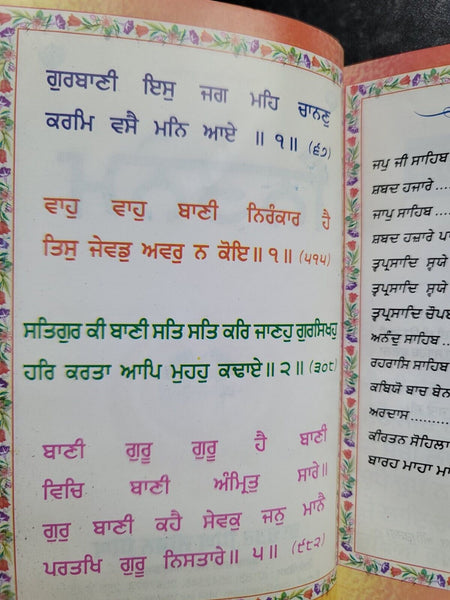 ਗੁਰਬਾਣੀ ਇਸੁ ਜਗ ਮਹਿ ਚਾਨਣੁ
ਕਰਮਿ ਵਸੈ ਮਨਿ ਆਏ ॥ ੧ ॥ (੬੭)
ਵਾਹੁ ਵਾਹੁ ਬਾਣੀ ਨਿਰੰਕਾਰ ਹੈ
ਤਿਸੁ ਜੇਵਡੁ ਅਵਰੁ ਨ ਕੋਇ॥ ੧ ॥ (੫੧੫)
ਸਤਿਗੁਰ ਕੀ ਬਾਣੀ ਸਤਿ ਸਤਿ ਕਰਿ ਜਾਣਹੁ ਗੁਰਸਿਖਹੁ
ਹਰਿ ਕਰਤਾ ਆਪਿ ਮੁਹਹੁ ਕਢਾਏ॥ ੨ ॥ (੩੦੮)
ਬਾਣੀ ਗੁਰੂ ਗੁਰੂ ਹੈ ਬਾਣੀ
ਵਿਚਿ ਬਾਣੀ ਅੰਮ੍ਰਿਤੁ ਸਾਰੇ॥
ਗੁਰੁ ਬਾਣੀ ਕਹੈ ਸੇਵਕੁ ਜਨੁ ਮਾਨੈ
ਪਰਤਖਿ ਗੁਰੂ ਨਿਸਤਾਰੇ॥ ੫ ॥ (੯੮੨)
ਜਪੁ ਜੀ ਸਾਹਿਬ
ਸ਼ਬਦ ਹਜਾਰੇ ....
ਜਾਪੁ ਸਾਹਿਬ ....
ਸ਼ਬਦ ਹਜ਼ਾਰੇ
ਤ੍ਵਪ੍ਰਸਾਦਿ ਸ੍ਵਯੇ
ਤ੍ਵਪ੍ਰਸਾਦਿ ਸ੍ਵਯੇ
ਤ੍ਵਪ੍ਰਸਾਦਿ
ਅਨੰਦੁ ਸਾਹਿਬ ....
ਰਹਰਾਸਿ ਸਾਹਿਬ
ਕਬਿਯੋ ਬਾਚ
ਅਰਦਾਸ ....
ਕੀਰਤਨ ਸੋਹਿਲਾ
ਬਾਰਹ ਮਾਹਾ